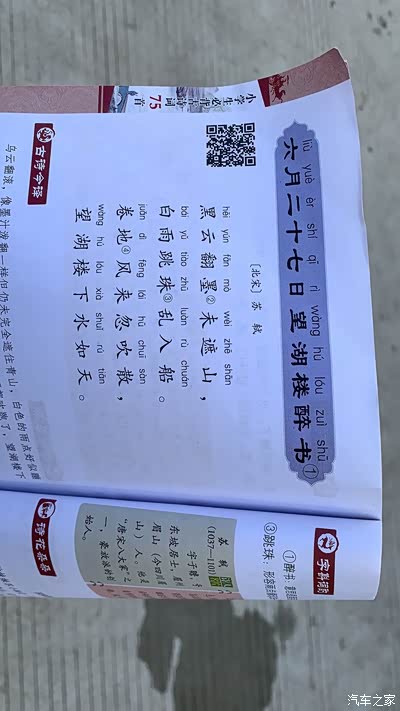 小学生必背古诗词75首
liù yuè èr shí qī rì wàng hú lóu zuì shū
六月二十七日望湖楼醉书①
[北宋] 苏轼
hēi yún fān mò wèi zhē shān
黑云翻墨②未遮山，
bái yǔ tiào zhū luàn rù chuán
白雨跳珠③乱入船。
juǎn dì fēng lái hū chuī sàn
卷地④风来忽吹散，
wàng hú lóu xià shuǐ rú tiān
望湖楼下水如天。
古诗今译
乌云翻滚，像墨汁泼翻一样但仍未完全遮住青山，白色的雨点好似
①醉书：
③跳珠：形容
苏轼
(1037—1101)
字子瞻，
东坡居士，
眉山（今四川眉
山）人。
“唐宋八大家”之
一，豪放派
始人。
诗花朵朵
汽车之家